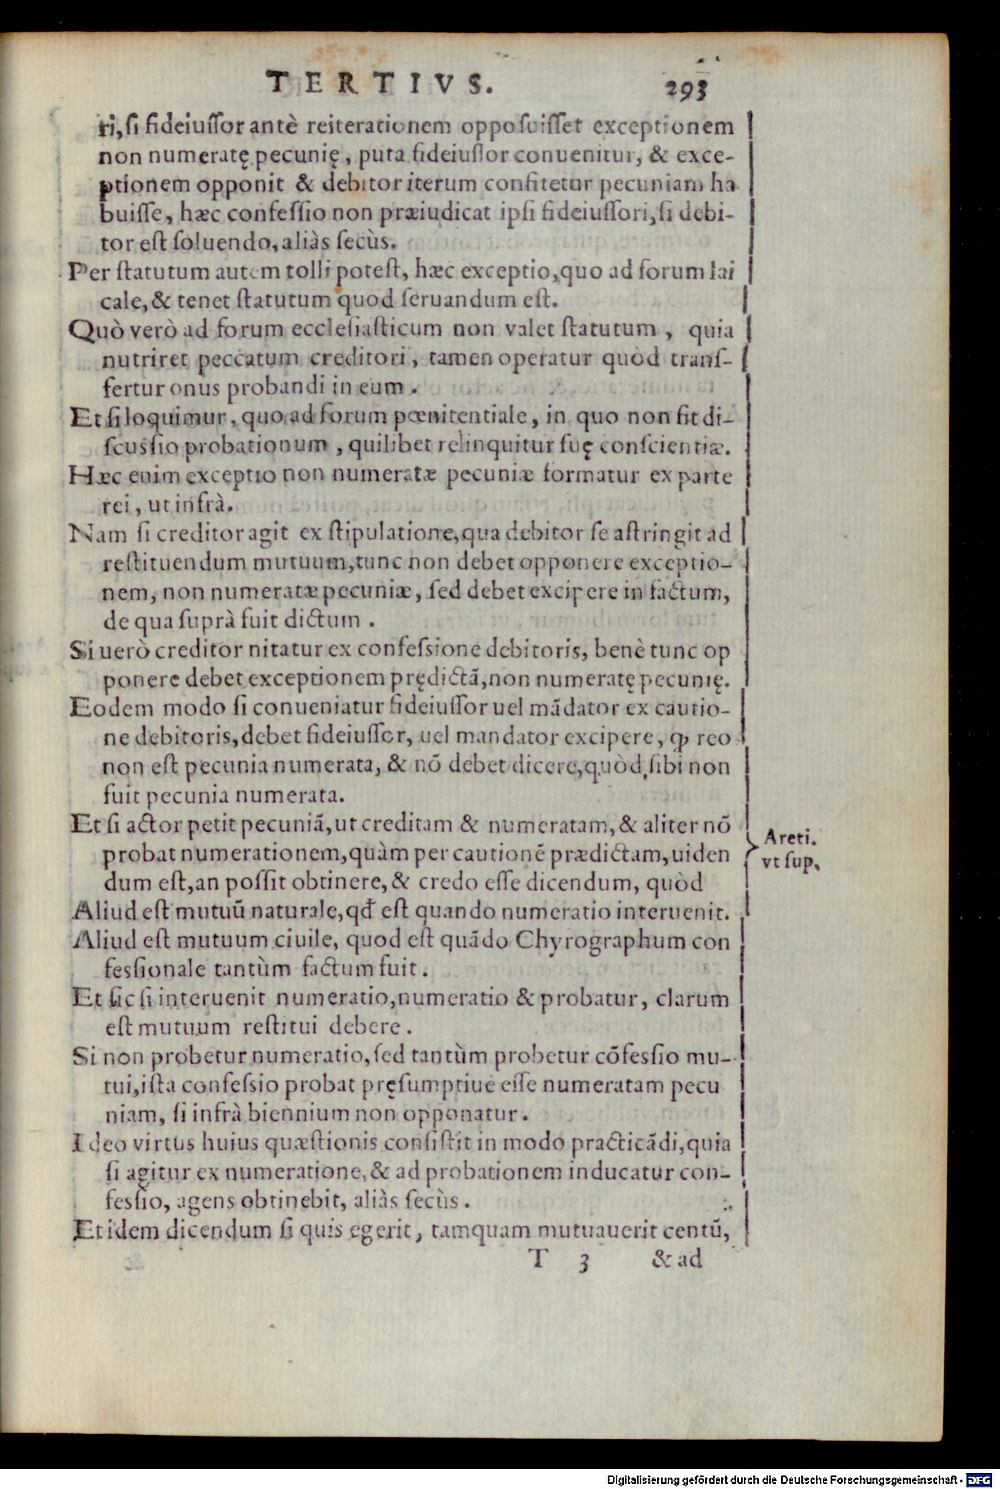 TERTIVS.
293
ri, si fideiussor antè reiterationem opposuisset exceptionem
non numeratę pecunię, puta fideiussor conuenitur, & exce-
ptionem opponit & debitor iterum confitetur pecuniam ha
buisse, hæc confessio non præiudicat ipsi fideiussori, si debi-
tor est soluendo, aliàs secùs.
Per statutum autem tolli potest, hæc exceptio, quo ad forum lai
cale, & tenet statutum quod seruandum est.
Quò verò ad forum ecclesiasticum non valet statutum, quia
nutriret peccatum creditori, tamen operatur quòd trans-
fertur onus probandi in eum.
Et si loquimur, quo ad forum pœnitentiale, in quo non fit di-
scussio probationum, quilibet relinquitur suę conscientiæ.
Hæc enim exceptio non numeratæ pecuniæ formatur ex parte
rei, ut infrà.
Nam si creditor agit ex stipulatione, qua debitor se astringit ad
restituendum mutuum, tunc non debet opponere exceptio-
nem, non numeratæ pecuniæ, sed debet excipere in factum,
de qua suprà fuit dictum.
Si uerò creditor nitatur ex confessione debitoris, benè tunc op
ponere debet exceptionem prędictã, non numeratę pecunię.
Eodem modo si conueniatur fideiussor uel mãdator ex cautio-
ne debitoris, debet fideiussor, uel mandator excipere, ꝙ reo
non est pecunia numerata, & nõ debet dicere, quòd sibi non
fuit pecunia numerata.
Et si actor petit pecuniã, ut creditam & numeratam, & aliter nõ
probat numerationem, quàm per cautionẽ prædictam, uiden
dum est, an possit obtinere, & credo esse dicendum, quòd
Areti.
vt sup.
Aliud est mutuũ naturale, qđ est quando numeratio interuenit.
Aliud est mutuum ciuile, quod est quãdo Chyrographum con
fessionale tantùm factum fuit.
Et sic si interuenit numeratio, numeratio & probatur, clarum
est mutuum restitui debere.
Si non probetur numeratio, sed tantùm probetur cõfessio mu-
tui, ista confessio probat pręsumptiue esse numeratam pecu
niam, si infrà biennium non opponatur.
Ideo virtus huius quæstionis consistit in modo practicãdi, quia
si agitur ex numeratione, & ad probationem inducatur con-
fessio, agens obtinebit, aliàs secùs.
Et idem dicendum si quis egerit, tamquam mutuauerit centũ,
T 3 & ad
Digitalisierung gefördert durch die Deutsche Forschungsgemeinschaft - DFG